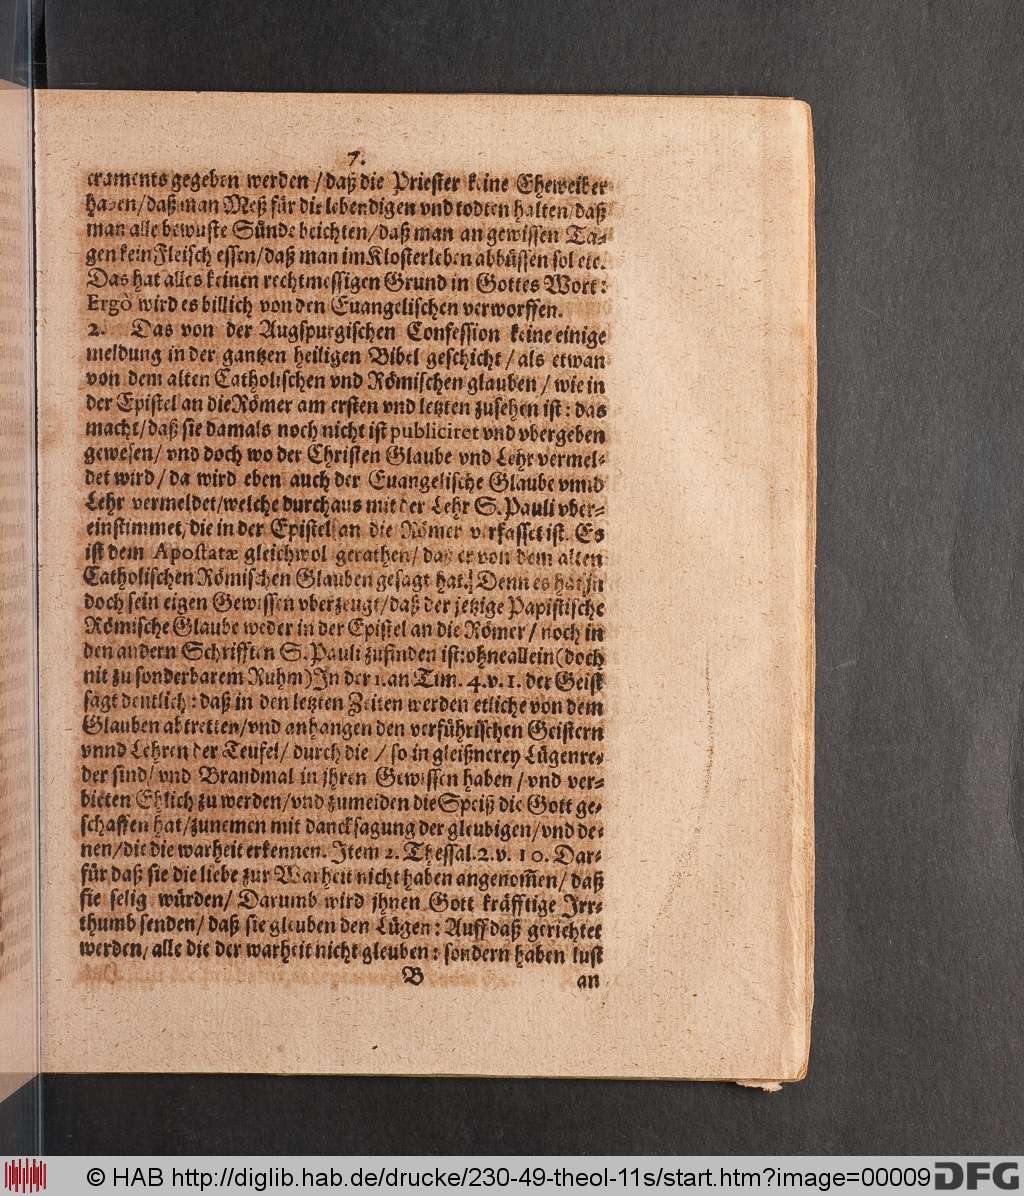 7.
craments gegeben werden / daß die Priester keine Eheweiber
haben / daß man Meß für die lebendigen vnd todten halten / daß
man alle bewuste Sünde beichten / daß man an gewissen Ta-
gen kein Fleisch essen / daß man im Klosterleben abbüssen sol etc.
Das hat alles keinen rechtmessigen Grund in Gottes Wort:
Ergò wird es billich von den Euangelischen verworffen.
2. Das von der Augspurgischen Confession keine einige
meldung in der gantzen heiligen Bibel geschicht / als etwan
von dem alten Catholischen vnd Römischen glauben / wie in
der Epistel an die Römer am ersten vnd letzten zusehen ist: das
macht / daß sie damals noch nicht ist publiciret vnd vbergeben
gewesen / vnd doch wo der Christen Glaube vnd Lehr vermel-
det wird / da wird eben auch der Euangelische Glaube vnnd
Lehr vermeldet / welche durchaus mit der Lehr S. Pauli vber-
einstimmet, die in der Epistel an die Römer verfasset ist. Es
ist dem Apostatæ gleichwol gerathen / das er von dem alten
Catholischen Römischen Glauben gesagt hat. Denn es hat jn
doch sein eigen Gewissen vberzeugt / daß der jetzige Papistische
Römische Glaube weder in der Epistel an die Römer / noch in
den andern Schrifften S. Pauli zufinden ist: ohne allein (doch
nit zu sonderbarem Ruhm) In der 1. an Tim. 4. v. 1. der Geist
sagt deutlich: daß in den letzten Zeiten werden etliche von dem
Glauben abtretten / vnd anhangen den verführischen Geistern
vnnd Lehren der Teufel / durch die / so in gleißnerey Lügenre-
der sind / vnd Brandmal in jhren Gewissen haben / vnd ver-
bieten Ehlich zu werden / vnd zumeiden die Speiß die Gott ge-
schaffen hat / zunemen mit dancksagung der gleubigen / vnd de-
nen / die die warheit erkennen. Item 2. Thessal. 2. v. 10. Dar-
für daß sie die liebe zur Warheit nicht haben angenom̃en / daß
sie selig würden / Darumb wird jhnen Gott kräfftige Irr-
thumb senden / daß sie gleuben den Lügen: Auff daß gerichtet
werden / alle die der warheit nicht gleuben: sondern haben lust
B an
© HAB http://diglib.hab.de/drucke/230-49-theol-11s/start.htm?image=00009 DFG